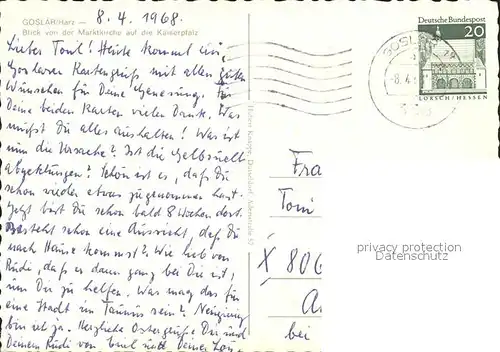 GOSLAR/Harz —
Blick von der Marktkirche auf die Kaiserpfalz
8. 4. 1968.
Liebe Toni! Heute kommt ein
Goslarer Kartengruß mit allen guten
Wünschen für Deine Genesung. Für
Deine beiden Karten vielen Dank. Was
mußt Du alles aushalten! Was ist
nun die Ursache? Ist die Gelbsucht
abgeklungen? Schön ist es, daß Du
schon wieder etwas zugenommen hast.
Jetzt bist Du schon bald 8 Wochen dort.
Besteht schon eine Aussicht, daß Du
nach Hause kommst? Wie lieb von
Rudi, daß er dann ganz bei Dir ist,
um Dir zu helfen. Was mag das für
eine Stadt im Taunus sein? Neugierig
bin ich ja. Herzliche Ostergrüße Dir und
Deinem Rudi von Emil und Deiner
Deutsche Bundespost
20
LORSCH/HESSEN
GOSLAR
-8.4.
Fra
Toni
X 806
bei
privacy protection
Datenschutz